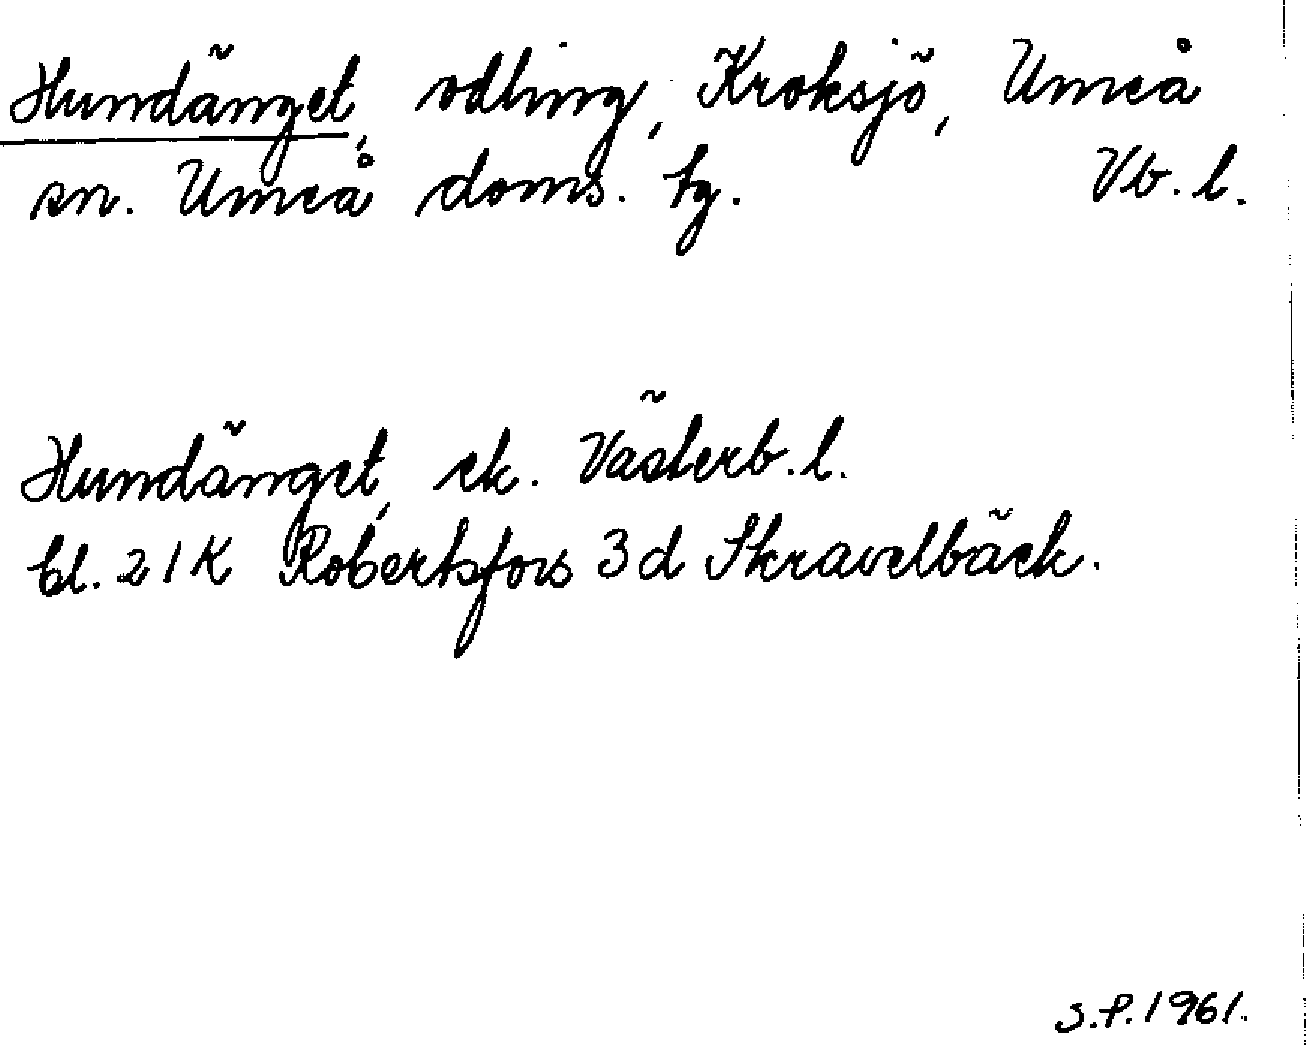 Hundänget, odling, Kroksjö, Umeå
sn. Umeå doms. tg. Vb. l.
Hundänget, ek. Västerb. l.
bl. 21K Robertsfors 3d Skravelbäck.
S.P. 1961.